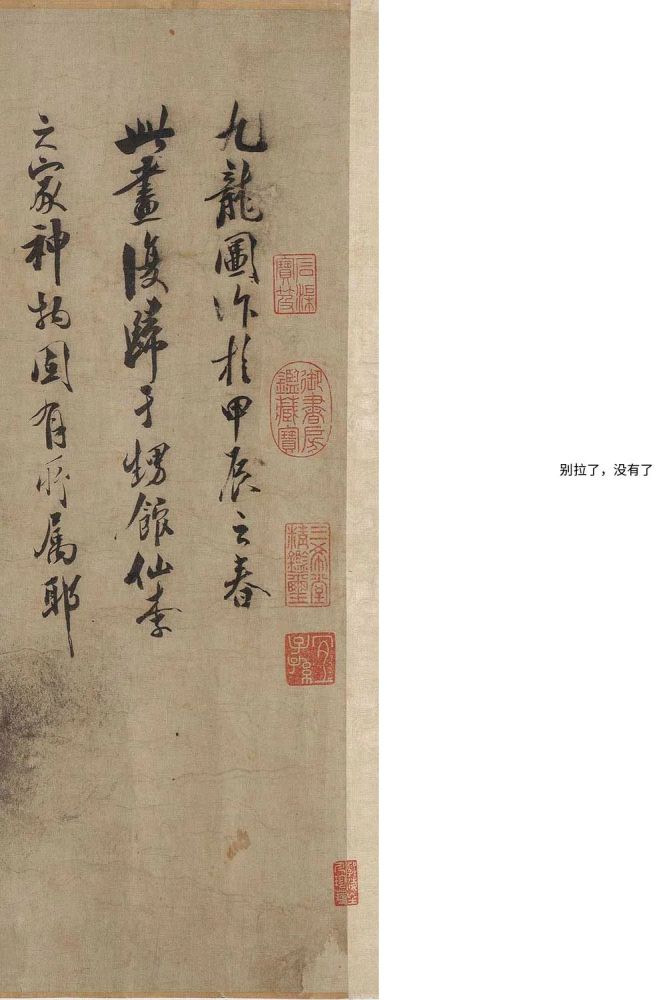 九龍圖作於甲辰之春
此畫復歸于甥館仙李
之家神物固有所屬耶
石渠寶笈
御書房鑑藏寶
三希堂精鑑璽
宜子孫
别拉了，没有了